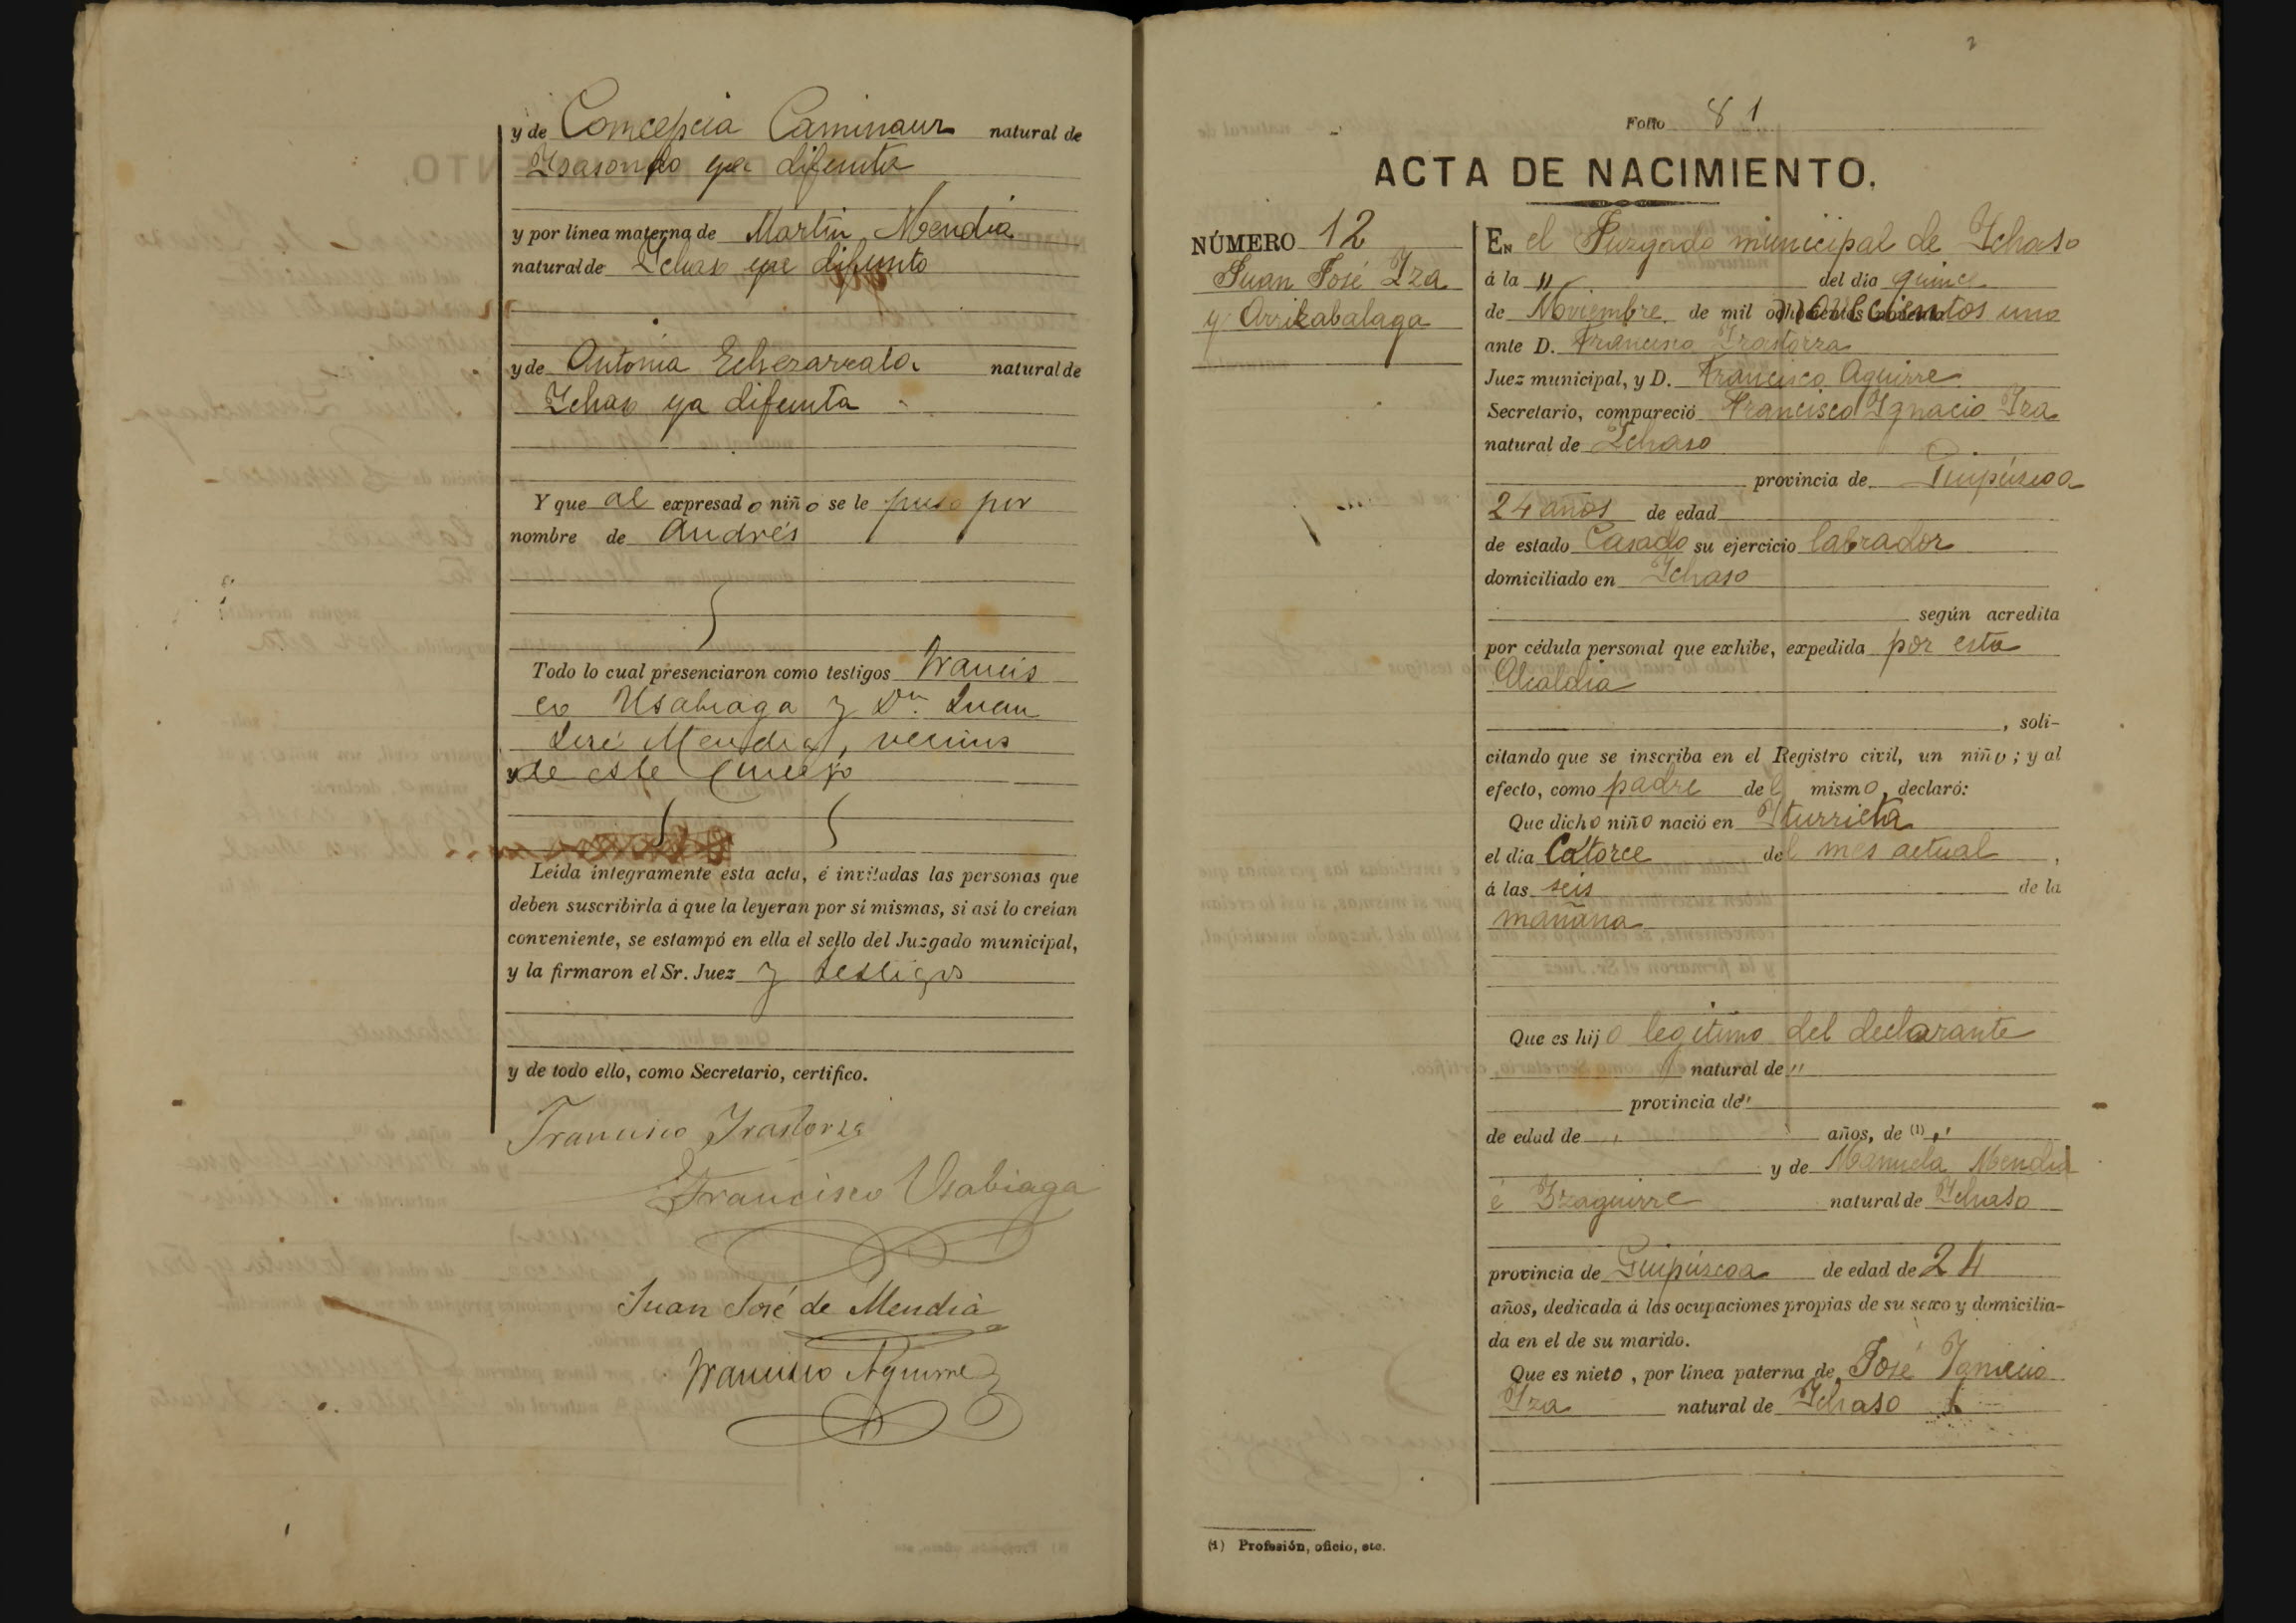 y de Concepcia Caminaur natural de
Isasondo ya difunta
y por línea materna de Martín Mendia
natural de Ichaso ya difunto
y de Antonia Echezarreta natural de
Ichaso ya difunta
Y que al expresado niño se le puso por
nombre de Andrés
Todo lo cual presenciaron como testigos Francis
co Usabiaga y Dn. Juan
José Mendia, vecinos
de este Concejo
Leída íntegramente esta acta, é invitadas las personas que
deben suscribirla á que la leyeran por sí mismas, si así lo creían
conveniente, se estampó en ella el sello del Juzgado municipal,
y la firmaron el Sr. Juez y testigos
y de todo ello, como Secretario, certifico.
Francisco Irastorza
Francisco Usabiaga
Juan José de Mendia
Francisco Aguirre
Folio 81
ACTA DE NACIMIENTO.
NÚMERO 12
Juan José Iza
y Arrizabalaga
En el Juzgado municipal de Ichaso
á la " del día quince
de Noviembre de mil novecientos uno
ante D. Francisco Irastorza
Juez municipal, y D. Francisco Aguirre
Secretario, compareció Francisco Ignacio Iza
natural de Ichaso
provincia de Guipúzcoa
24 años de edad
de estado Casado su ejercicio labrador
domiciliado en Ichaso
según acredita
por cédula personal que exhibe, expedida por esta
Alcaldía
, soli-
citando que se inscriba en el Registro civil, un niño; y al
efecto, como padre del mismo, declaró:
Que dicho niño nació en Iturrieta
el día Catorce del mes actual,
á las seis de la
mañana
Que es hijo legítimo del declarante
natural de "
provincia de "
de edad de " años, de (1) "
y de Manuela Mendia
é Izaguirre natural de Ichaso
provincia de Guipúzcoa de edad de 24
años, dedicada á las ocupaciones propias de su sexo y domicilia-
da en el de su marido.
Que es nieto, por línea paterna de José Ignacio
Iza natural de Ichaso
(1) Profesión, oficio, etc.